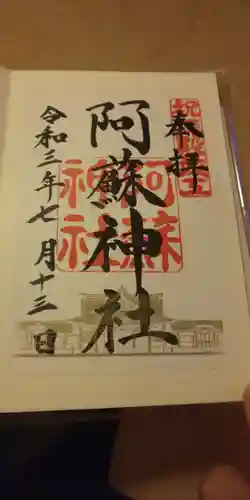 奉拝
阿蘇神社
阿蘇
神社
令和三年七月十三日